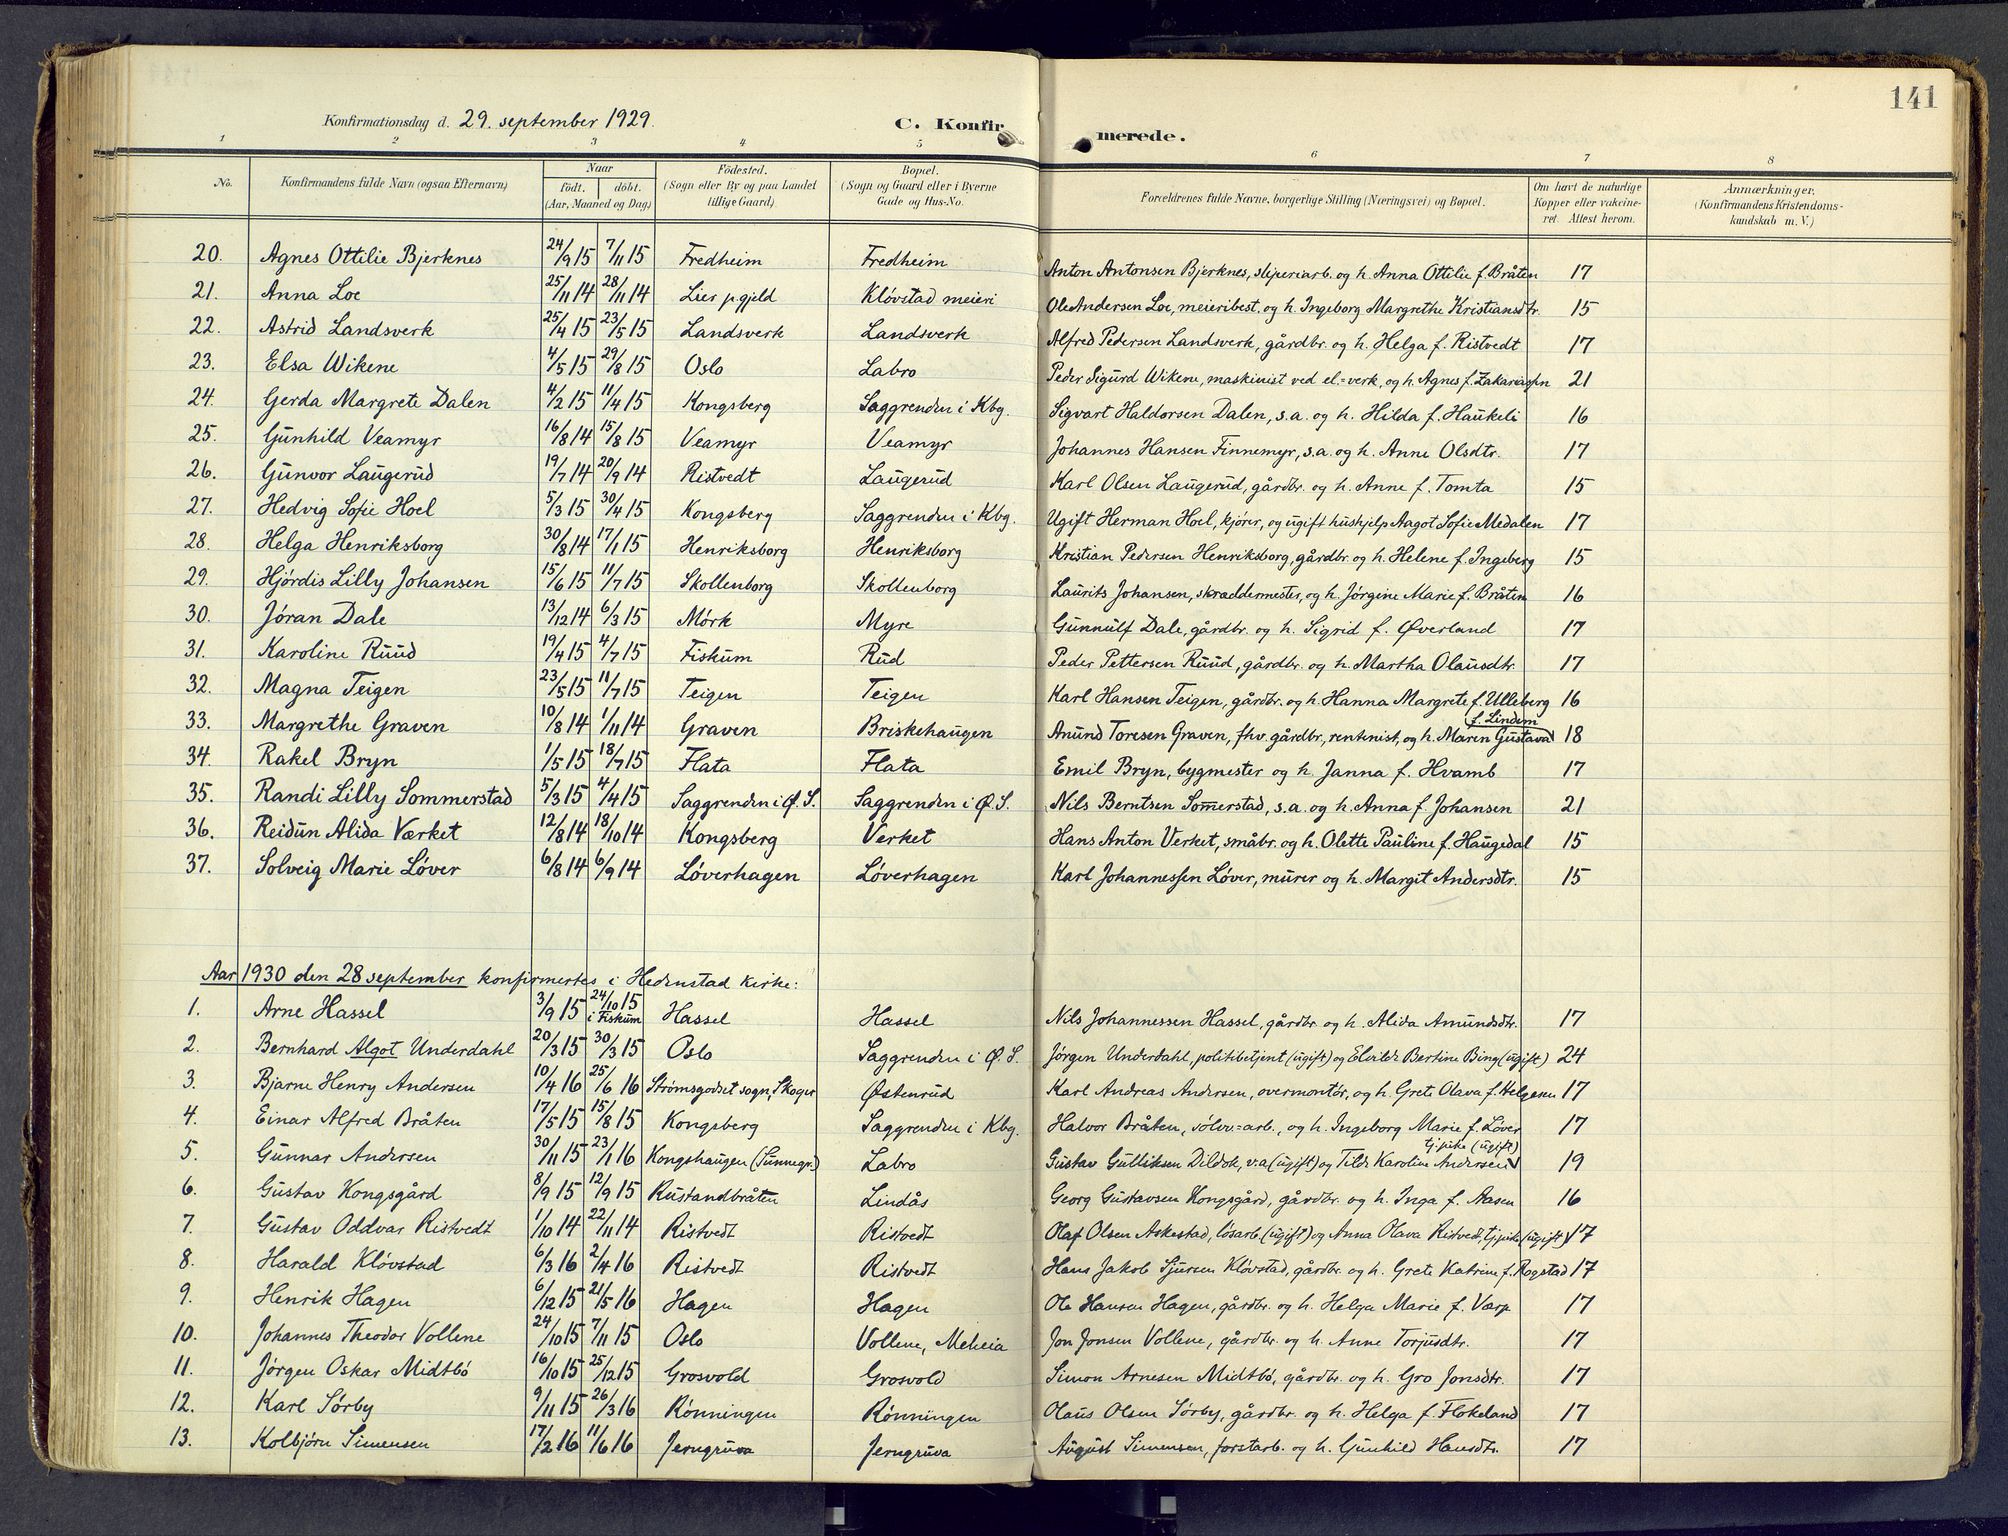 141
Konfirmationsdag d. 29. september 1929. C. Konfirmerede.
1 2 3 4 5 6 7 8
No. Konfirmandens fulde Navn (ogsaa Efternavn) Naar født. døbt. (Aar, Maaned og Dag) Fødested. (Sogn eller By og paa Landet tillige Gaard) Bopæl. (Sogn og Gaard eller i Byerne Gade og Hus-No. Forældrenes fulde Navne, borgerlige Stilling (Næringsvei) og Bopæl. Om havt de naturlige Kopper eller vakcineret. Attest herom. Anmærkninger. (Konfirmandens Kristendomskundskab m. V.)
20. Agnes Ottilie Bjerknes 24/9 15 7/11 15 Fredheim Fredheim Anton Antonsen Bjerknes, sliperiarb. og h. Anna Ottilie f. Bråten 17
21. Anna Loe 25/11 14 28/11 14 Lier p.gjeld Kløvstad meieri Ole Andersen Loe, meieribest. og h. Ingeborg Margrethe Kristiansdtr. 15
22. Astrid Landsverk 25/4 15 23/5 15 Landsverk Landsverk Alfred Pedersen Landsverk, gårdbr. og h. Helga f. Ristvedt 17
23. Elsa Wikene 4/5 15 29/8 15 Oslo Labro Peder Sigurd Wikene, maskinist ved el=verk, og h. Agnes f. Zakariassen 21
24. Gerda Margrete Dalen 4/2 15 11/4 15 Kongsberg Saggrenden i Kbg. Sigvart Haldorsen Dalen, s.a. og h. Hilda f. Haukeli 16
25. Gunhild Veamyr 16/8 14 15/8 15 Veamyr Veamyr Johannes Hansen Finnemyr, s.a. og h. Anne Olsdtr. 17
26. Gunvor Laugerud 19/7 14 20/9 14 Ristvedt Laugerud Karl Olsen Laugerud, gårdbr. og h. Anne f. Tomta 15
27. Hedvig Sofie Hoel 5/3 15 30/4 15 Kongsberg Saggrenden i Kbg. Ugift Herman Hoel, kjører, og ugift hushjelp Aagot Sofie Medalen 17
28. Helga Henriksborg 30/8 14 17/1 15 Henriksborg Henriksborg Kristian Pedersen Henriksborg, gårdbr. og h. Helene f. Ingeberg 15
29. Hjørdis Lilly Johansen 15/6 15 11/7 15 Skollenborg Skollenborg Laurits Johansen, skræddermester, og h. Jørgine Marie f. Bråten 16
30. Jøran Dale 13/12 14 6/3 15 Mørk Myre Gunnulf Dale, gårdbr. og h. Sigrid f. Øverland 17
31. Karoline Ruud 19/4 15 4/7 15 Fiskum Rud Peder Pettersen Ruud, gårdbr. og h. Martha Olausdtr. 17
32. Magna Teigen 23/5 15 11/7 15 Teigen Teigen Karl Hansen Teigen, gårdbr. og h. Hanna Margrete f. Ulleberg 16
33. Margrethe Graven 10/8 14 1/11 14 Graven Briskehaugen Anund Toresen Graven, fhv. gårdbr., rentenist, og h. Maren Gustava f. Lindem 18
34. Rakel Bryn 1/5 15 18/7 15 Flata Flata Emil Bryn, bygmester og h. Janna f. Hvamb 17
35. Randi Lilly Sommerstad 5/3 15 4/4 15 Saggrenden i Ø. S. Saggrenden i Ø. S. Nils Berntsen Somerstad, s.a. og h. Anna f. Johansen 21
36. Reidun Alida Værket 12/8 14 18/10 14 Kongsberg Verket Hans Anton Verket, småbr. og h. Olette Pauline f. Haugedal 15
37. Solveig Marie Løver 6/8 14 6/9 14 Løverhagen Løverhagen Karl Johannessen Løver, murer og h. Margit Andersdtr. 15
Aar 1930 den 28 september konfirmertes i Hedenstad kirke:
1. Arne Hassel 3/9 15 24/10 15 i Fiskum Hassel Hassel Nils Johannessen Hassel, gårdbr. og h. Alida Amundsdtr. 17
2. Bernhard Algot Underdahl 20/3 15 30/3 15 Oslo Saggrenden i Ø. S. Jørgen Underdahl, politibetjent (ugift) og Elvilde Bertine Bing (ugift) 24
3. Bjarne Henry Andersen 10/4 16 25/6 16 Strømsgodset sogn, Skoger Østenrud Karl Andreas Andersen, overmontør, og h. Grete Olava f. Helgesen 17
4. Einar Alfred Bråten 17/5 15 15/8 15 Kongsberg Saggrenden i Kbg. Halvor Bråten, sølvv=arb., og h. Ingeborg Marie f. Løver 17
5. Gunnar Andersen 30/11 15 23/1 16 Kongshaugen (Sunnegr.) Labro Gustav Gulliksen Dildok, v.a (ugift) og Tilde Karoline Andersen tj.pike (ugift) 19
6. Gustav Kongsgård 8/9 15 12/9 15 Rustandbråten Lindås Georg Gustavsen Kongsgård, gårdbr. og h. Inga f. Aasen 16
7. Gustav Oddvar Ristvedt 1/10 14 22/11 14 Ristvedt Ristvedt Olaf Olsen Askestad, løsarb. (ugift) og Anna Olava Ristvedt, tj.pike (ugift) 17
8. Harald Kløvstad 6/3 16 2/4 16 Ristvedt Ristvedt Hans Jakob Sjursen Kløvstad, gårdbr. og h. Grete Katrine f. Rogstad 17
9. Henrik Hagen 6/12 15 21/5 16 Hagen Hagen Ole Hansen Hagen, gårdbr. og h. Helga Marie f. Værp 17
10. Johannes Theodor Vollene 24/10 15 7/11 15 Oslo Vollene, Meheia Jon Jonsen Vollene, gårdbr. og h. Anne Torjusdtr. 17
11. Jørgen Oskar Midtbø 16/10 15 25/12 15 Grosvold Grosvold Simon Arnesen Midtbø, gårdbr. og h. Gro Jonsdtr. 17
12. Karl Sørby 9/11 15 26/3 16 Rønningen Rønningen Olaus Olsen Sørby, gårdbr. og h. Helga f. Flokeland 17
13. Kolbjørn Simensen 17/2 16 11/6 16 Jerngruva Jerngruva August Simensen, forstarb. og h. Gunhild Hansdtr. 17